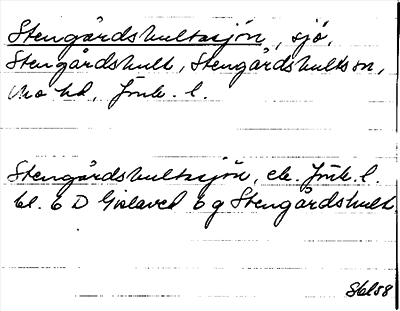 Stengårdshultasjön, sjö,
Stengårdshult, Stengårdshults sn,
Mo hd, Jönk. l.
Stengårdshultasjön, ek. Jönk. l.
bl. 6 D Gislaved 6 g Stengårdshult